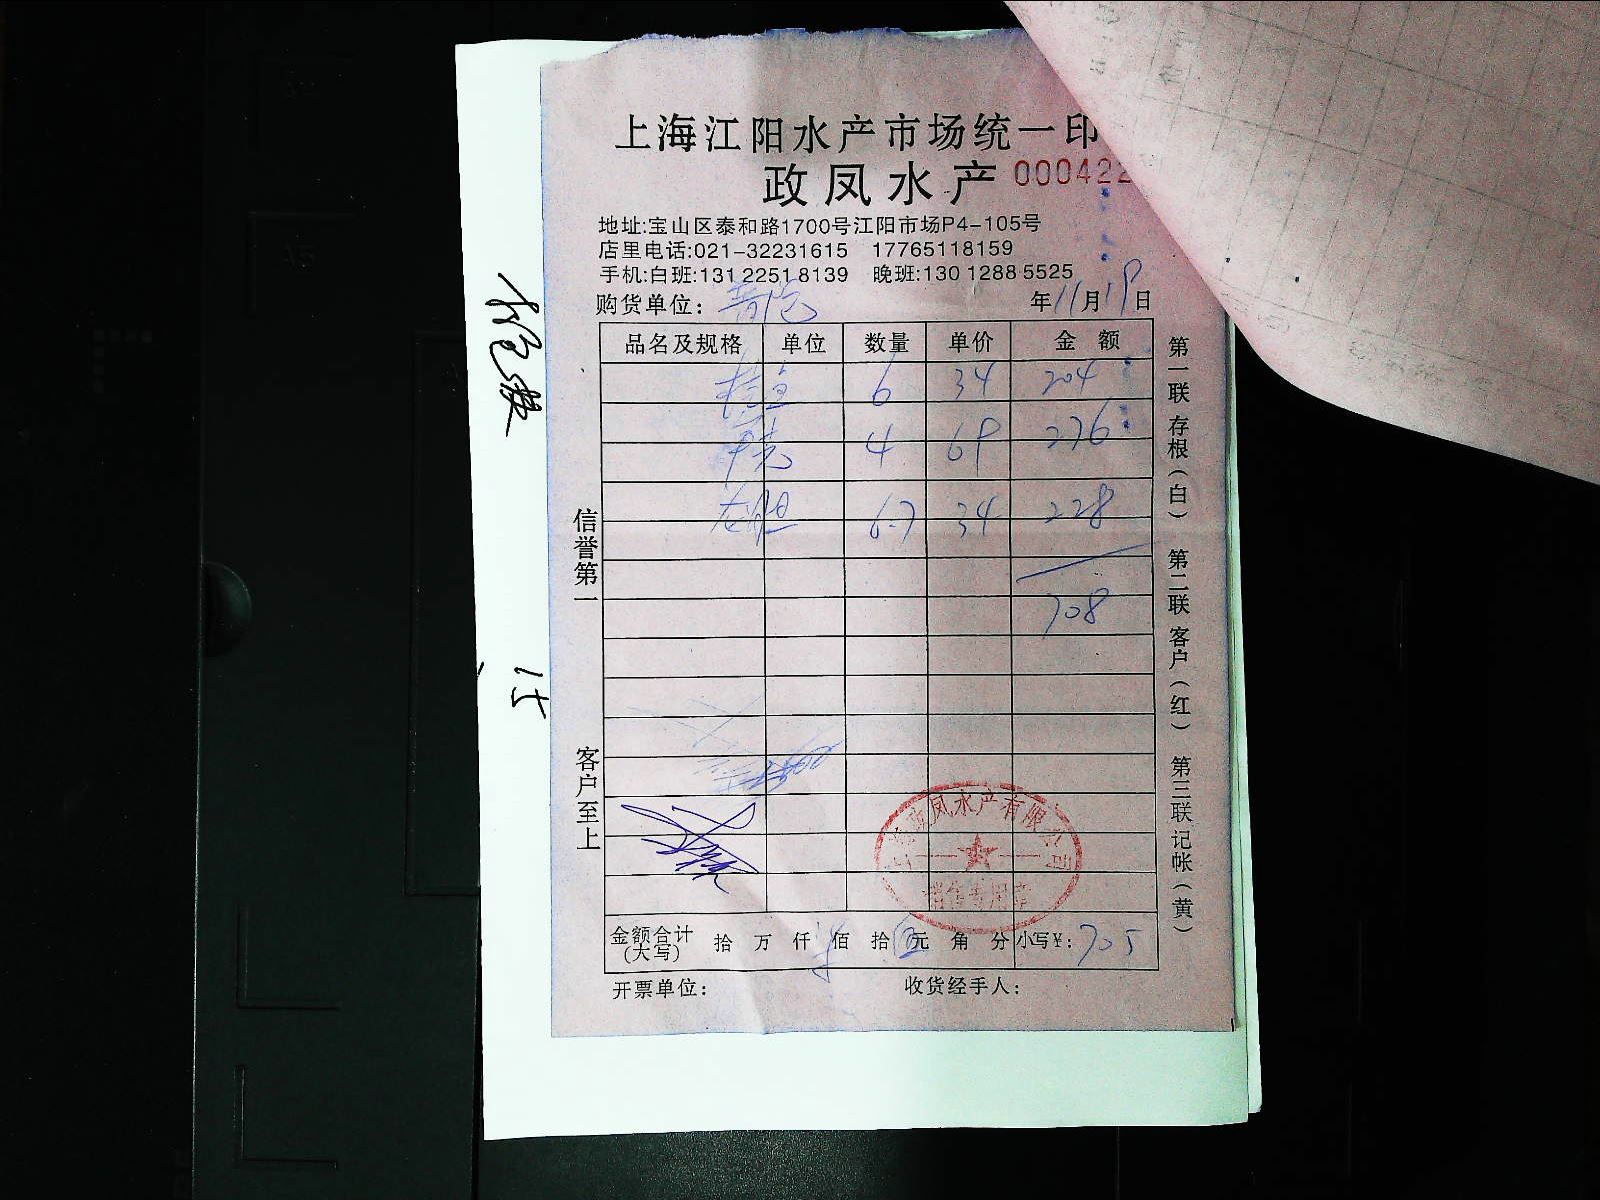 上海江阳水产市场统一印
政凤水产 000422
地址:宝山区泰和路1700号江阳市场P4-105号
店里电话:021-32231615 17765118159
手机:白班:131 2251 8139 晚班:130 1288 5525
购货单位: 年11月19日
品名及规格 单位 数量 单价 金额
6 34 204
4 69 276
龙胆 6.7 34 228
708
信誉第一
客户至上
第一联存根(白) 第二联客户(红) 第三联记帐(黄)
政凤水产有限公司
销售专用章
金额合计(大写) 拾 万 仟 佰 拾 元 角 分 小写¥: 705
开票单位: 收货经手人:
15